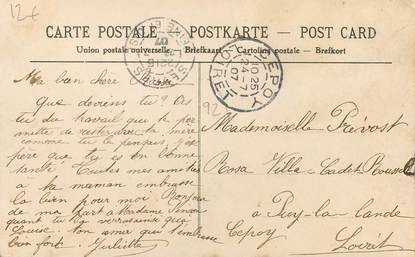 12€
CARTE POSTALE — POSTKARTE — POST CARD
Union postale universelle. — Briefkaart — Cartolina postale — Brefkort
CEPOY
10 25
24-7
07
LOIRET
92
Ma bien chère
Que deviens tu? As
tu du travail que te per
mette de rester avec ta mère
comme tu le pensais, j'es
père que tu es en bonne
santé. Toutes mes amitiés
à ta maman embrasse
la bien pour moi. Bonjour
de ma part à Madame
quand tu la verras ainsi que
Louise. Ton amie qui t'embrasse
bien fort. Juliette
Mademoiselle Prévost
Rosa Villa - Cadet Roussel
à Puy-la-lande
Cepoy
Loiret